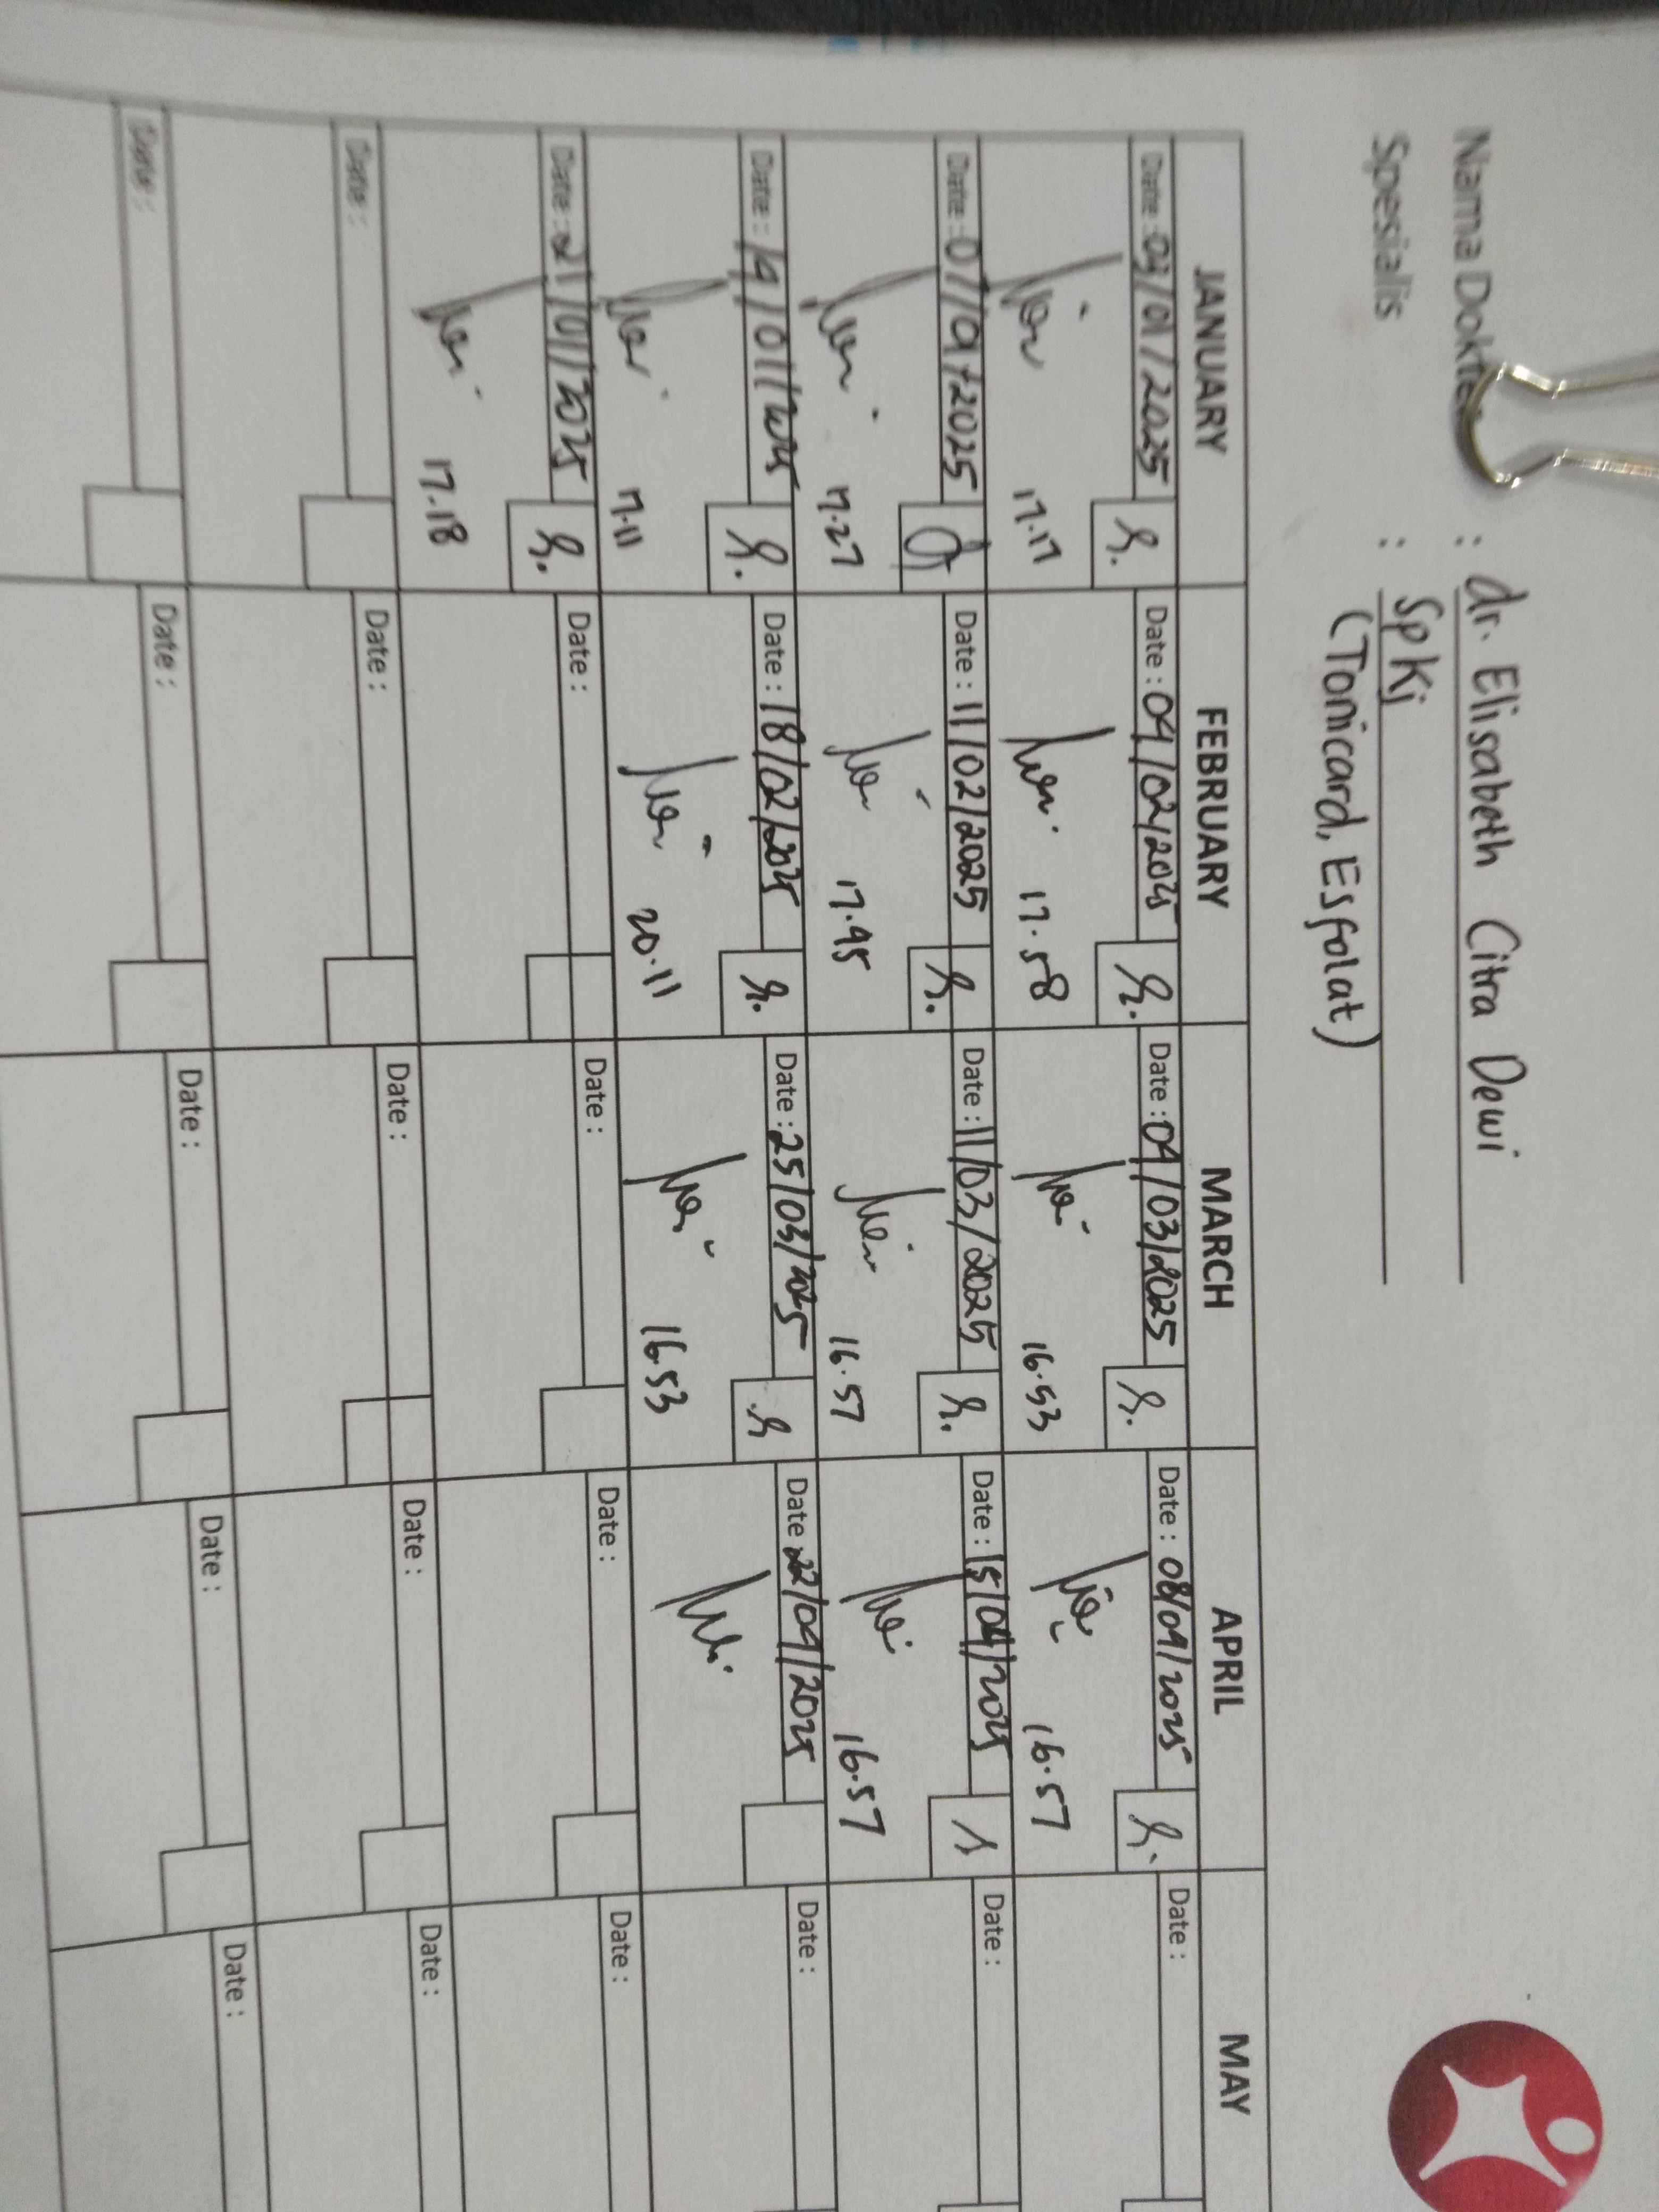 Nama Dokter : dr. Elisabeth Citra Dewi
Spesialis : SpKj
(Tonicard, Esfolat)
JANUARY FEBRUARY MARCH APRIL MAY
Date : 03/01/2025 Date : 04/02/2025 Date : 04/03/2025 Date : 08/04/2025 Date :
17.17 17.58 16.53 16.57
Date : 07/01/2025 Date : 11/02/2025 Date : 11/03/2025 Date : 15/04/2025 Date :
17.27 17.45 16.57 16.57
Date : 14/01/2025 Date : 18/02/2025 Date : 25/03/2025 Date : 22/04/2025 Date :
17.11 20.11 16.53
Date : 21/01/2025 Date : Date : Date : Date :
17.18
Date : Date : Date : Date : Date :
Date : Date : Date : Date : Date :